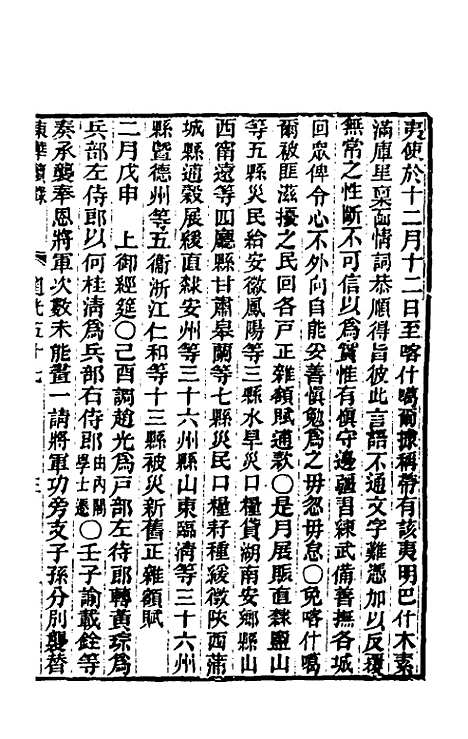 夷使於十二月十二日至喀什噶爾據稱帶有該夷明巴什木素
滿庫里稟函情詞恭順得旨彼此言語不通文字難憑加以反覆
無常之性斷不可信以爲實惟有愼守邊疆習練武備善撫各城
回眾俾分心不外向自能妥善愼勉爲之毋忽毋怠○免喀什噶
爾被匪滋擾之民回各戶正雜額賦逋欵○是月展賑直隸鹽山
等五縣災民給安徽鳳陽等三縣水旱災口糧貸湖南安鄉縣山
西甯遠等四廳縣甘肅皋蘭等七縣災民口糧籽種緩徵陝西蒲
城縣逋穀展緩直隸安州等三十六州縣山東臨淸等三十六州
縣暨德州等五衞浙江仁和等十三縣被災新舊正雜額賦
二月戊申　上御經筵○己酉調趙光爲戶部左侍郎轉黃琮爲
兵部左侍郎以何桂淸爲兵部右侍郎由內閣學士遷○壬子諭載銓等
奏承襲奉恩將軍次數未能畫一請將軍功旁支子孫分別襲替
東華續錄　道光五十七　三